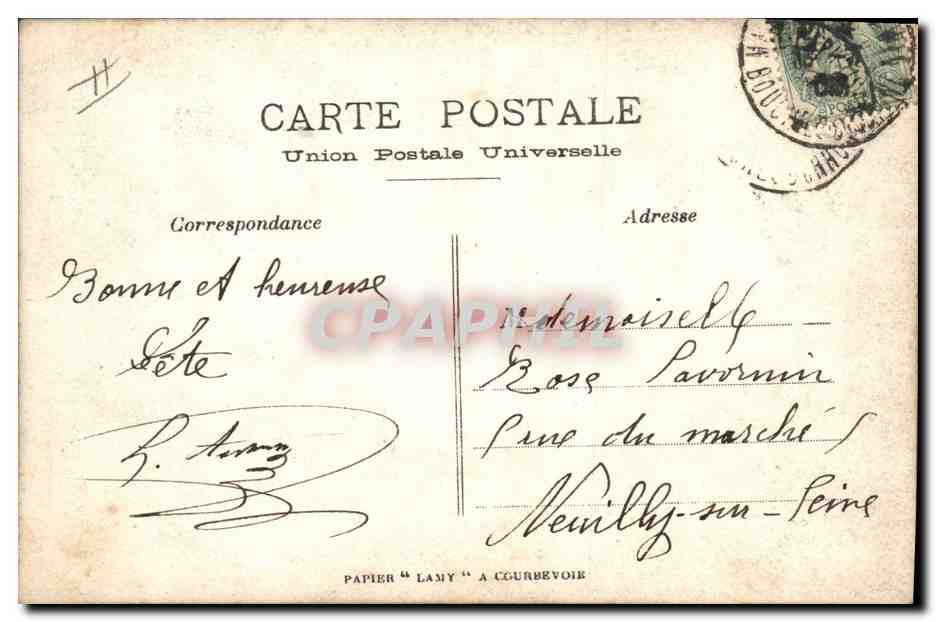 CARTE POSTALE
Union Postale Universelle
Correspondance
Bonne et heureuse
fête
Adresse
Mademoiselle
Rose Lavornin
rue du marché
Neuilly-sur-Seine
CPAPHIL
PAPIER " LAMY " A COURBEVOIE